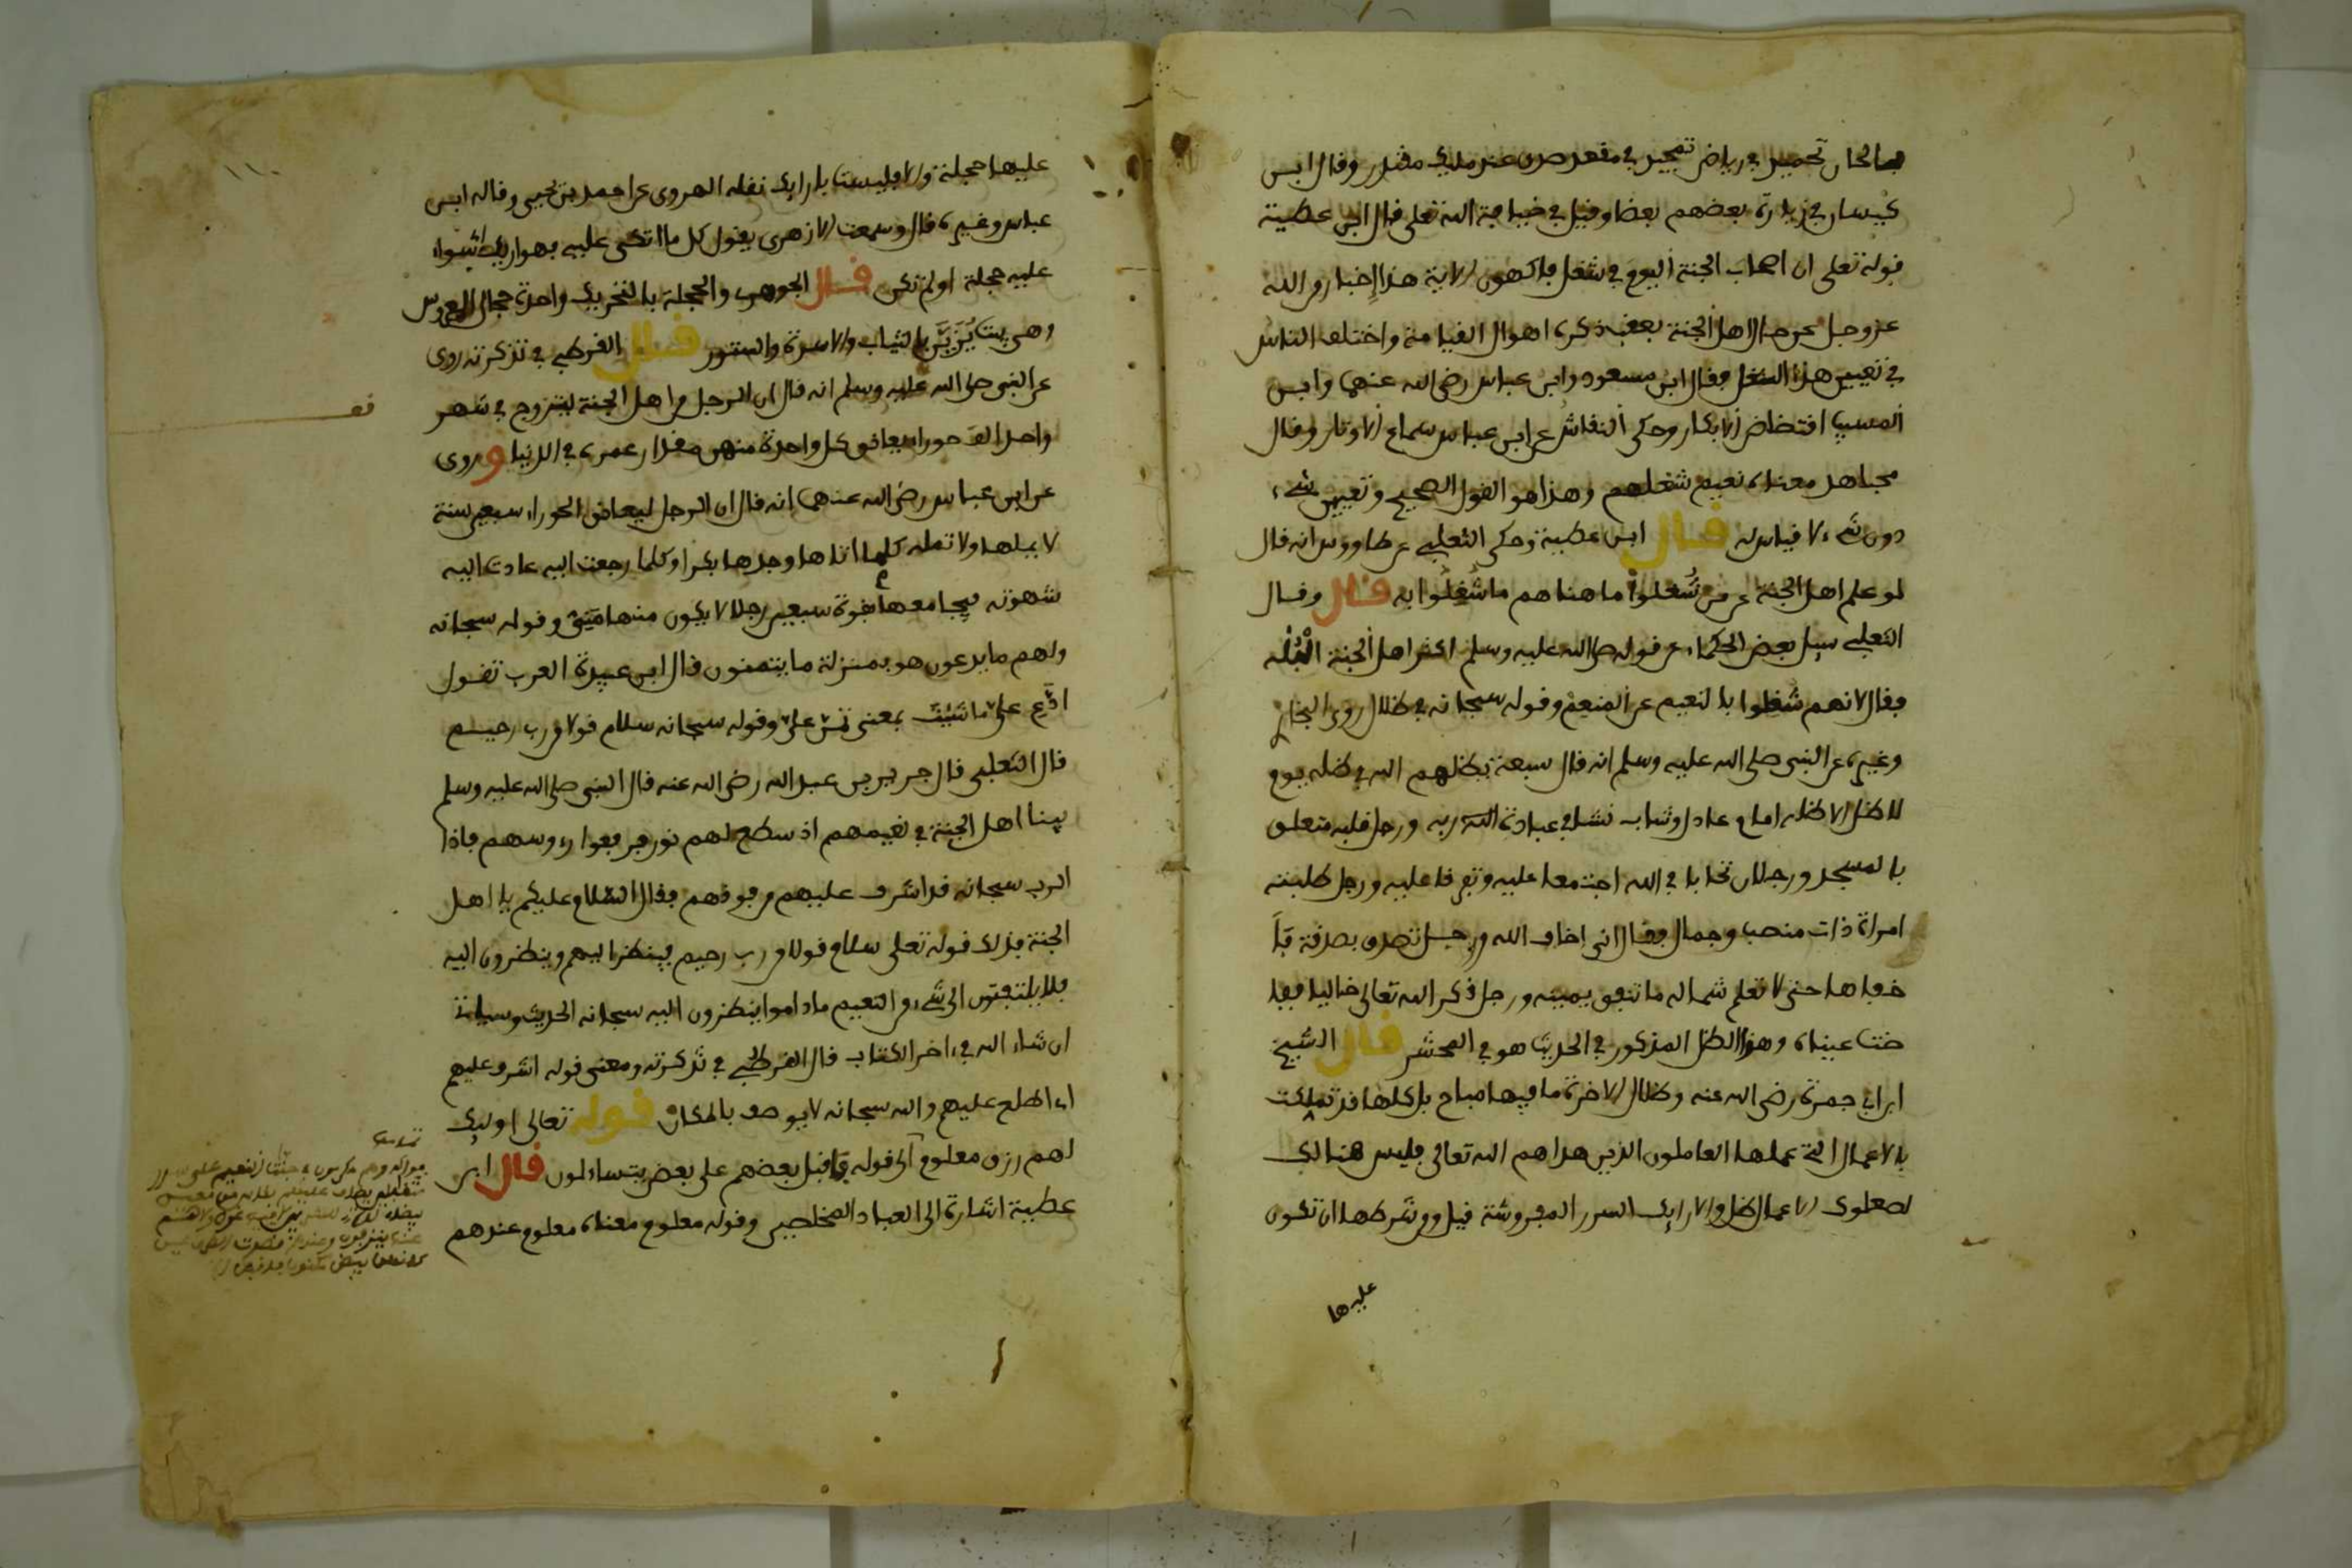 بمالحان تحميد في رياض تمجيد في مقعد صدق عند مليك مقتدر وقال ابن
كيسان في زيارة بعضهم بعضا وقيل في ضيافة الله تعلى قال ابن عطية
قوله تعلى ان اصحاب الجنة اليوم في شغل فاكهون الاية هذا إخبار من الله
عز وجل عن حال اهل الجنة بعقب ذكره اهوال القيامة واختلف الناس
في تعيين هذا الشغل فقال ابن مسعود وابن عباس رضي الله عنهما وابن
المسيب افتضاض الابكار وحكى النقاش عن ابن عباس سماع الاوتار وقال
مجاهد معناه نعيم شغلهم وهذا هو القول الصحيح وتعيين شيء
دون شيء لا قياس له قال ابن عطية وحكى الثعلبي عن طاووس انه قال
لو علم اهل الجنة عن من شُغلوا ما هناهم ما شُغِلُوا به قال وقال
الثعلبي سيل بعض الحكماء عن قوله صلى الله عليه وسلم اكثر اهل الجنة الْبُلْه
فقال لانهم شغلوا بالنعيم عن المنعم وقوله سبحانه في ظلال روى البخاري
وغيره عن النبي صلى الله عليه وسلم انه قال سبعة يظلهم الله في ظله يوم
لا ظل الا ظله امام عادل وشاب نشا في عبادة الله ربه ورجل قلبه متعلق
بالمسجد ورجلان تحابا في الله اجتمعا عليه وتفرقا عليه ورجل طلبته
امراة ذات منصب وجمال فقال اني اخاف الله ورجل تصدق بصدقة فا
خفاها حتى لا تعلم شماله ما تنفق يمينه ورجل ذكر الله تعالى خاليا ففا
ضت عيناه وهذا الظل المذكور في الحديث هو في المحشر قال الشيخ
ابن ابي جمرة رضي الله عنه وظلال الاخرة ما فيها مباح بل كلها قد تملكت
بالاعمال التي عملها العاملون الذين هداهم الله تعالى فليس هنالك
لصعلوك الاعمال ظل والارايك السرر المفروشة قيل ومن شرطها ان تكون
عليها
عليها حجلة والا فليست بارايك نقله الهروي عن احمد بن يحيى وقاله ابن
عباس وغيره قال وسمعت الازهري يقول كل ما اتكى عليه فهو اريكة سواء
عليه حجلة او لم تكن قال الجوهري والحجلة بالتحريك واحدة حجال العروس
وهي بيت يُزَيَّن بالثياب والاسرة والستور قال القرطبي في تذكرته روى
عن النبي صلى الله عليه وسلم انه قال ان الرجل من اهل الجنة ليتزوج في شهر
واحد الف حورا يعانق كل واحدة منهن مقدار عمره في الدنيا وروى
عن ابن عباس رضي الله عنهما انه قال ان الرجل ليعانق الحوراء سبعين سنة
لا يملها ولا تمله كلما اتاها وجدها بكرا وكلما رجعت اليه عادت اليه
شهوته فيجامعها بقوة سبعين رجلا لا يكون منهما مَنِيّ وقوله سبحانه
ولهم ما يدعون هو بمنزلة ما يتمنون قال ابن عبيدة العرب تقول
ادَّعِ عليّ ما شيت بمعنى تمنّ عليّ وقوله سبحانه سلام قولا من رب رحيم
قال الثعلبي قال جرير بن عبد الله رضي الله عنه قال النبي صلى الله عليه وسلم
بينا اهل الجنة في نعيمهم اذ سطع لهم نور فرفعوا رءوسهم فاذا
الرب سبحانه قد اشرف عليهم من فوقهم فقال السلام عليكم يا اهل
الجنة فذلك قوله تعلى سلام قولا من رب رحيم فينظر اليهم وينظرون اليه
فلا يلتفتون الى شيء من النعيم ما داموا ينظرون اليه سبحانه الحديث وسياتي
ان شاء الله في اخر الكتاب قال القرطبي في تذكرته ومعنى قوله اشرف عليهم
اي اطلع عليهم والله سبحانه لا يوصف بالمكان قوله تعالى اوليك
لهم رزق معلوم الى قوله فاقبل بعضهم على بعض يتساءلون قال ابن
عطية اشارة الى العباد المخلصين وقوله معلوم معناه معلوم عندهم
قف
فواكه وهم مكرمون في جنت النعيم على سرر
متقابلين يطاف عليهم بكاس من معين
بيضاء لذة للشربين لا فيها غول ولا هم
عنها ينزفون وعندهم قصرت الطرف عين
كانهن بيض مكنون